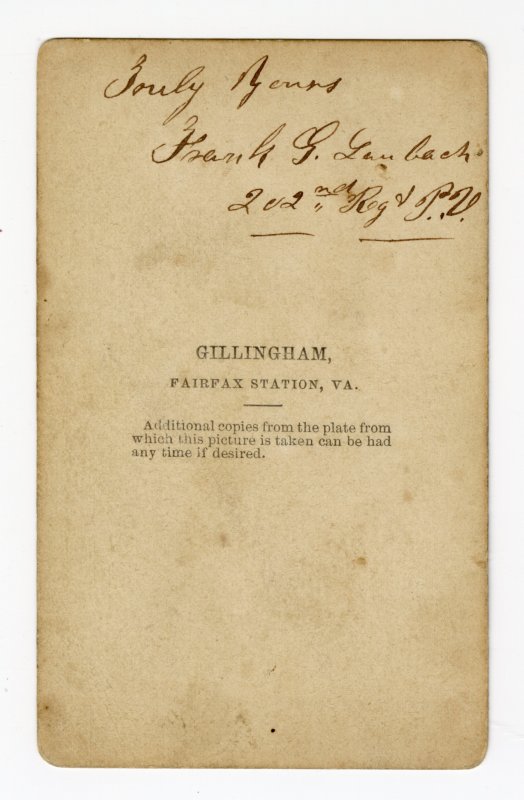 Truly Yours
Frank G. Laubach
202nd Regt P.V.
GILLINGHAM,
FAIRFAX STATION, VA.
Additional copies from the plate from
which this picture is taken can be had
any time if desired.